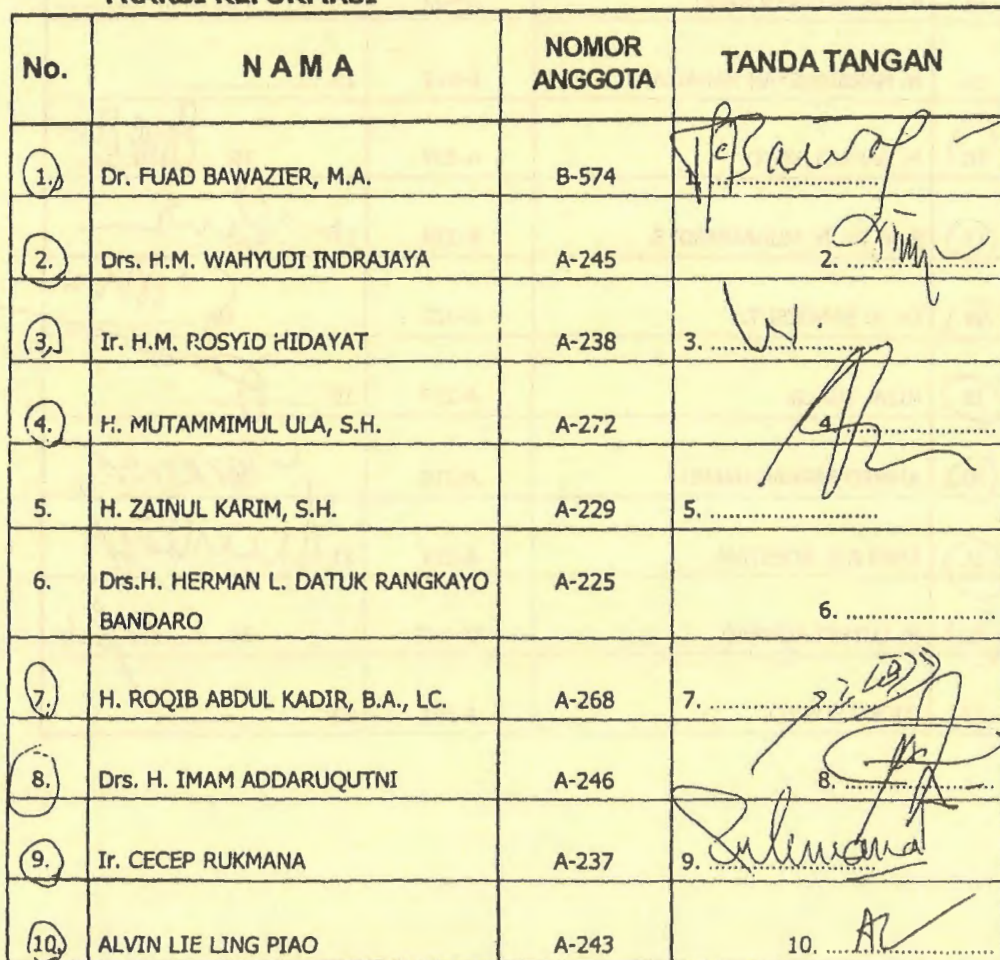 FRAKSI REFORMASI
No. N A M A NOMOR ANGGOTA TANDA TANGAN
1. Dr. FUAD BAWAZIER, M.A. B-574 1.
2. Drs. H.M. WAHYUDI INDRAJAYA A-245 2.
3. Ir. H.M. ROSYID HIDAYAT A-238 3.
4. H. MUTAMMIMUL ULA, S.H. A-272 4.
5. H. ZAINUL KARIM, S.H. A-229 5.
6. Drs.H. HERMAN L. DATUK RANGKAYO A-225
BANDARO 6.
7. H. ROQIB ABDUL KADIR, B.A., LC. A-268 7.
8. Drs. H. IMAM ADDARUQUTNI A-246 8.
9. Ir. CECEP RUKMANA A-237 9.
10. ALVIN LIE LING PIAO A-243 10.